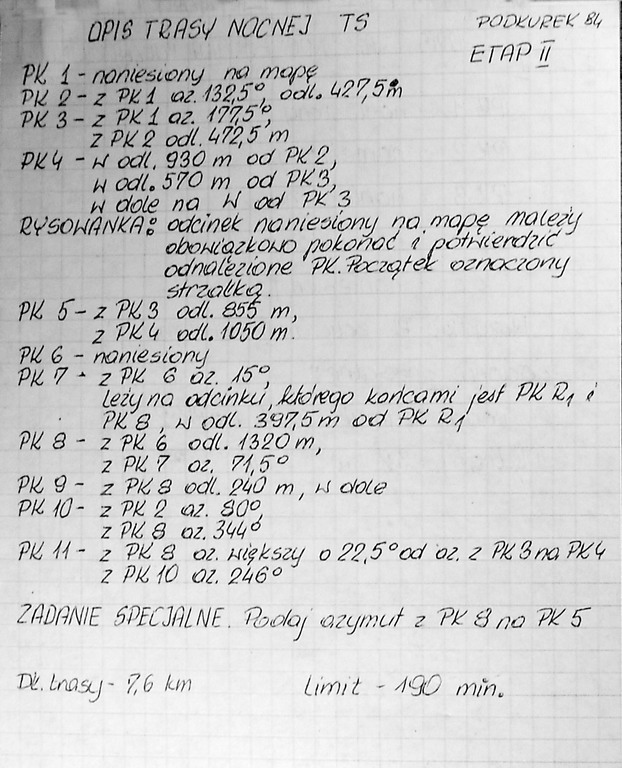 OPIS TRASY NOCNEJ TS
PODKUREK 84
ETAP II
PK 1 - naniesiony na mapę
PK 2 - z PK 1 az. 132,5°, odl. 427,5m
PK 3 - z PK 1 az. 177,5°,
z PK 2 odl. 472,5 m
PK 4 - w odl. 930 m od PK 2,
w odl. 570 m od PK 3,
w dole na W od PK 3
RYSOWANKA: odcinek naniesiony na mapę należy
obowiązkowo pokonać i potwierdzić
odnalezione PK. Początek oznaczony
strzałką.
PK 5 - z PK 3 odl. 855 m,
z PK 4 odl. 1050 m.
PK 6 - naniesiony
PK 7 - z PK 6 az. 15°,
leży na odcinku, którego końcami jest PK R1 i
PK 8, w odl. 397,5m od PK R1
PK 8 - z PK 6 odl. 1320 m,
z PK 7 az. 71,5°
PK 9 - z PK 8 odl. 240 m, w dole
PK 10 - z PK 2 az. 80°,
z PK 8 az. 344°
PK 11 - z PK 8 az. większy o 22,5° od az. z PK 3 na PK 4
z PK 10 az. 246°
ZADANIE SPECJALNE. Podaj azymut z PK 8 na PK 5
Dł. trasy - 7,6 km
Limit - 190 min.